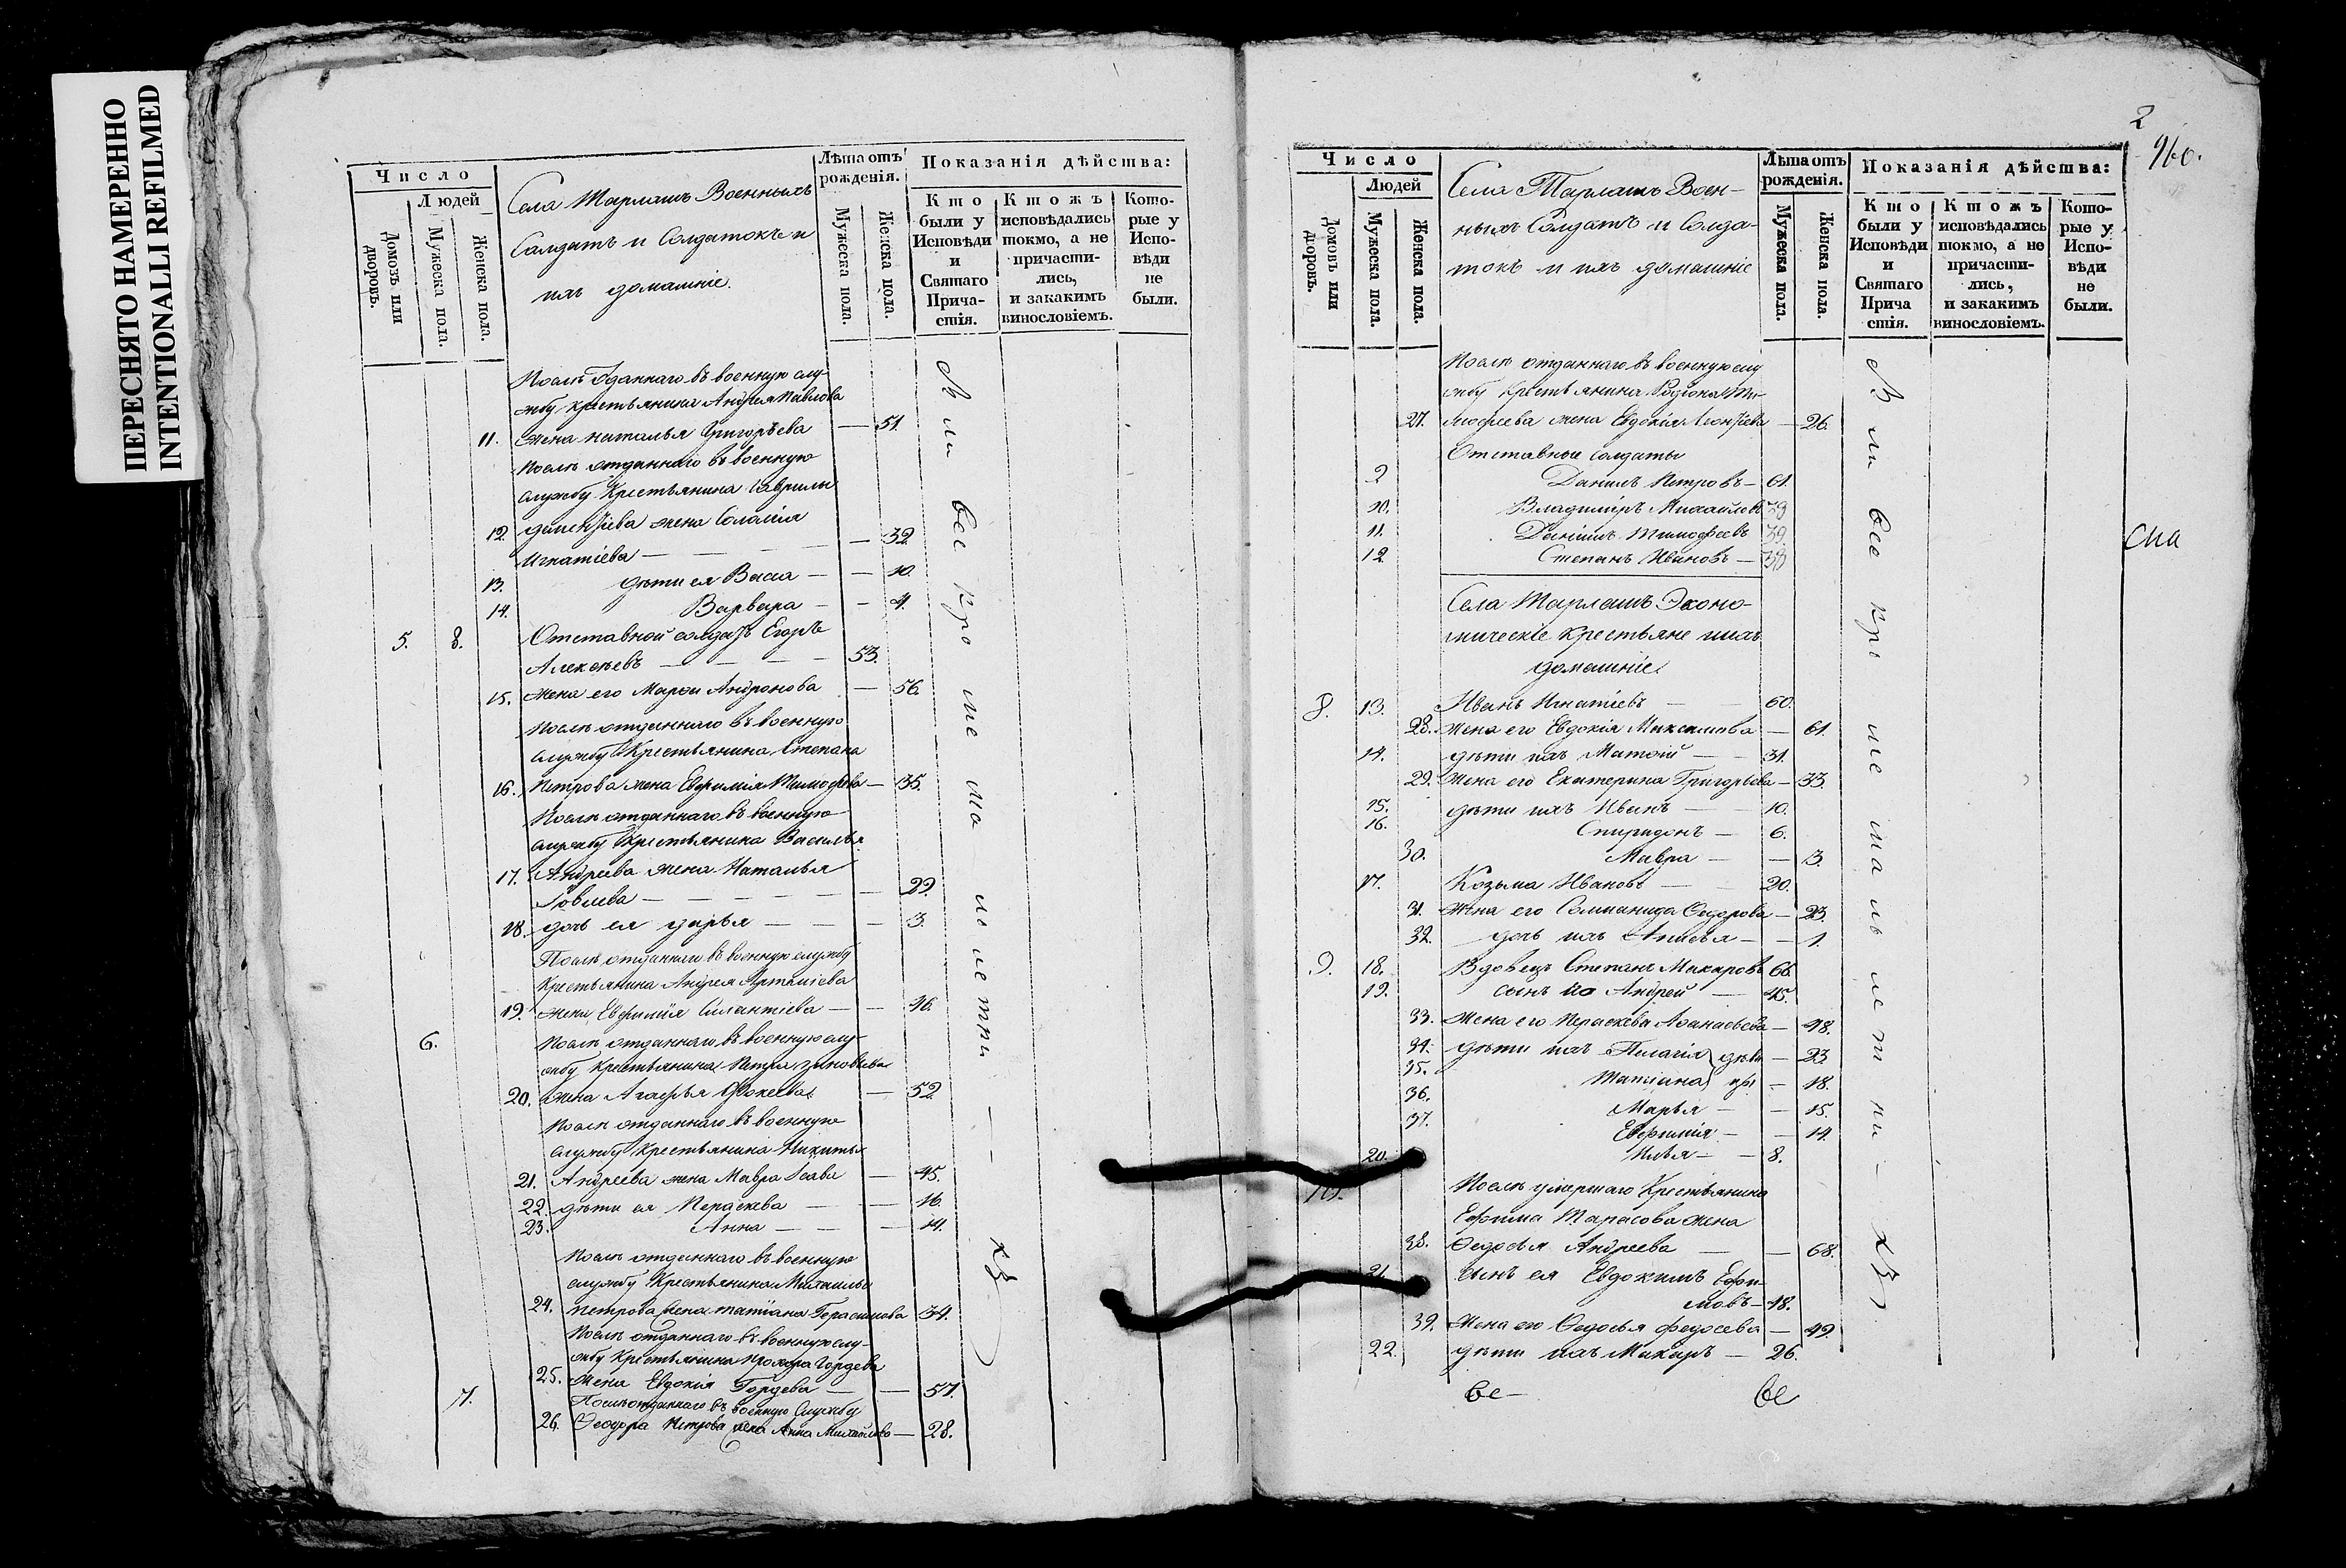 ПЕРЕСНЯТО НАМЕРЕННО
INTENTIONALLI REFILMED
Число
Людей
Домовъ или дворовъ.
Мужеска пола.
Женска пола.
Села Тарлашъ Военныхъ
Салдатъ и Солдатокъ и
ихъ домашніе.
Лѣта отъ рожденія.
Мужеска пола.
Женска пола.
Показанія дѣйства:
Кто были у Исповѣди и Святаго Причастія.
Ктожъ исповѣдались токмо, а не причастились, и закакимъ винословіемъ.
Которые у Исповѣди не были.
Послѣ отданнаго въ военную слу-
жбу крестьянина Андрея Павлова
11. жена наталья Григорьева — 51.
Послѣ отданнаго въ военную
службу Крестьянина Гаврилы
12. жена Соломія
Игнатіева — 32.
13. дѣти ея Васса — — 10.
14. Варвара — — 4.
5. 8. Отставной солдатъ Егоръ
Алексѣевъ — — — 53.
15. жена его Марѳа Андронова — 56.
Послѣ отданнаго въ военную
службу Крестьянина Степана
16. Петрова жена Евфимія Тимофѣева — 35.
Послѣ отданнаго въ военную
службу Крестьянина Василья
17. Андреева жена Наталья
Іовлева — — — 29.
18. дочь ея дарья — — 3.
Послѣ отданнаго въ военную службу
Крестьянина Андрея
19. жена Евфимія Силантіева — — 46.
6. Послѣ отданнаго въ военную слу-
жбу Крестьянина Петра Зиновьева
20. жена Агафья Фокеева — 52.
Послѣ отданнаго въ военную
службу Крестьянина Никиты
21. Андреева жена Мавра Исаева — 45.
22. дѣти ея Параскева — — 16.
23. Анна — — — 14.
Послѣ отданнаго въ военную
службу Крестьянина Михайлы
24. Петрова жена татіана Герасимова 34.
Послѣ отданнаго въ военную слу-
жбу Крестьянина Прохора Гордева
25. жена Евдокія Гордева — — 57.
7. Послѣ отданнаго въ военную Службу
26. Ѳеодора Петрова жена Анна Михайлова — 28.
Вли всѣ кромѣ малолетни
2
960.
Число
Людей
Домовъ или дворовъ.
Мужеска пола.
Женска пола.
Села Тарлашъ Воен-
ныхъ Солдатъ и Солда-
токъ и ихъ домашніе
Лѣта отъ рожденія.
Мужеска пола.
Женска пола.
Показанія дѣйства:
Кто были у Исповѣди и Святаго Причастія.
Ктожъ исповѣдались токмо, а не причастились, и закакимъ винословіемъ.
Которые у Исповѣди не были.
Послѣ отданнаго въ военную слу
жбу Крестьянина Родіона Ти-
27. мофеева жена Евдокія Леонтіева — 26.
Отставные солдаты
9 Данилъ Петровъ — 61.
10. Владиміръ Михайловъ 39
11. Даніилъ Тимофеевъ 39.
12 Степанъ Ивановъ — 38
Села Тарлашъ Эконо-
мическіе крестьяне ихъ
домашніе.
8. 13. Иванъ Игнатіевъ — 60.
28. жена его Евдокія Максимова — 61.
14. дѣти ихъ Матѳій — 31.
29. жена его Екатерина Григорьева — 33.
15. дѣти ихъ Иванъ — 10.
16. Спиридонъ — 6.
30. Мавра — — 3.
17. Козьма Ивановъ — 20.
31. жена его Соломанида Ѳедорова — 23.
32. дочь ихъ Анисья — — 1.
9. 18. Вдовецъ Степанъ Макаровъ 66.
19. сынъ его Андрей — 45.
33. жена его Параскева Аѳанасьева — 48.
34. дѣти ихъ Пелагія — 23
35. Татіана — 18.
36. Марья — — 15.
37. Евфимія — — 14.
20. Илья — — 8.
10. Послѣ умершаго Крестьянина
Ефима Тарасова жена
38. Ѳедосья Андреева — — 68.
21. сынъ ея Евдокимъ Ефи-
мовъ — 48.
39. жена его Ѳедосья федосеева — 49.
22. дѣти ихъ Макаръ — 26.
Вли всѣ кромѣ малолетни